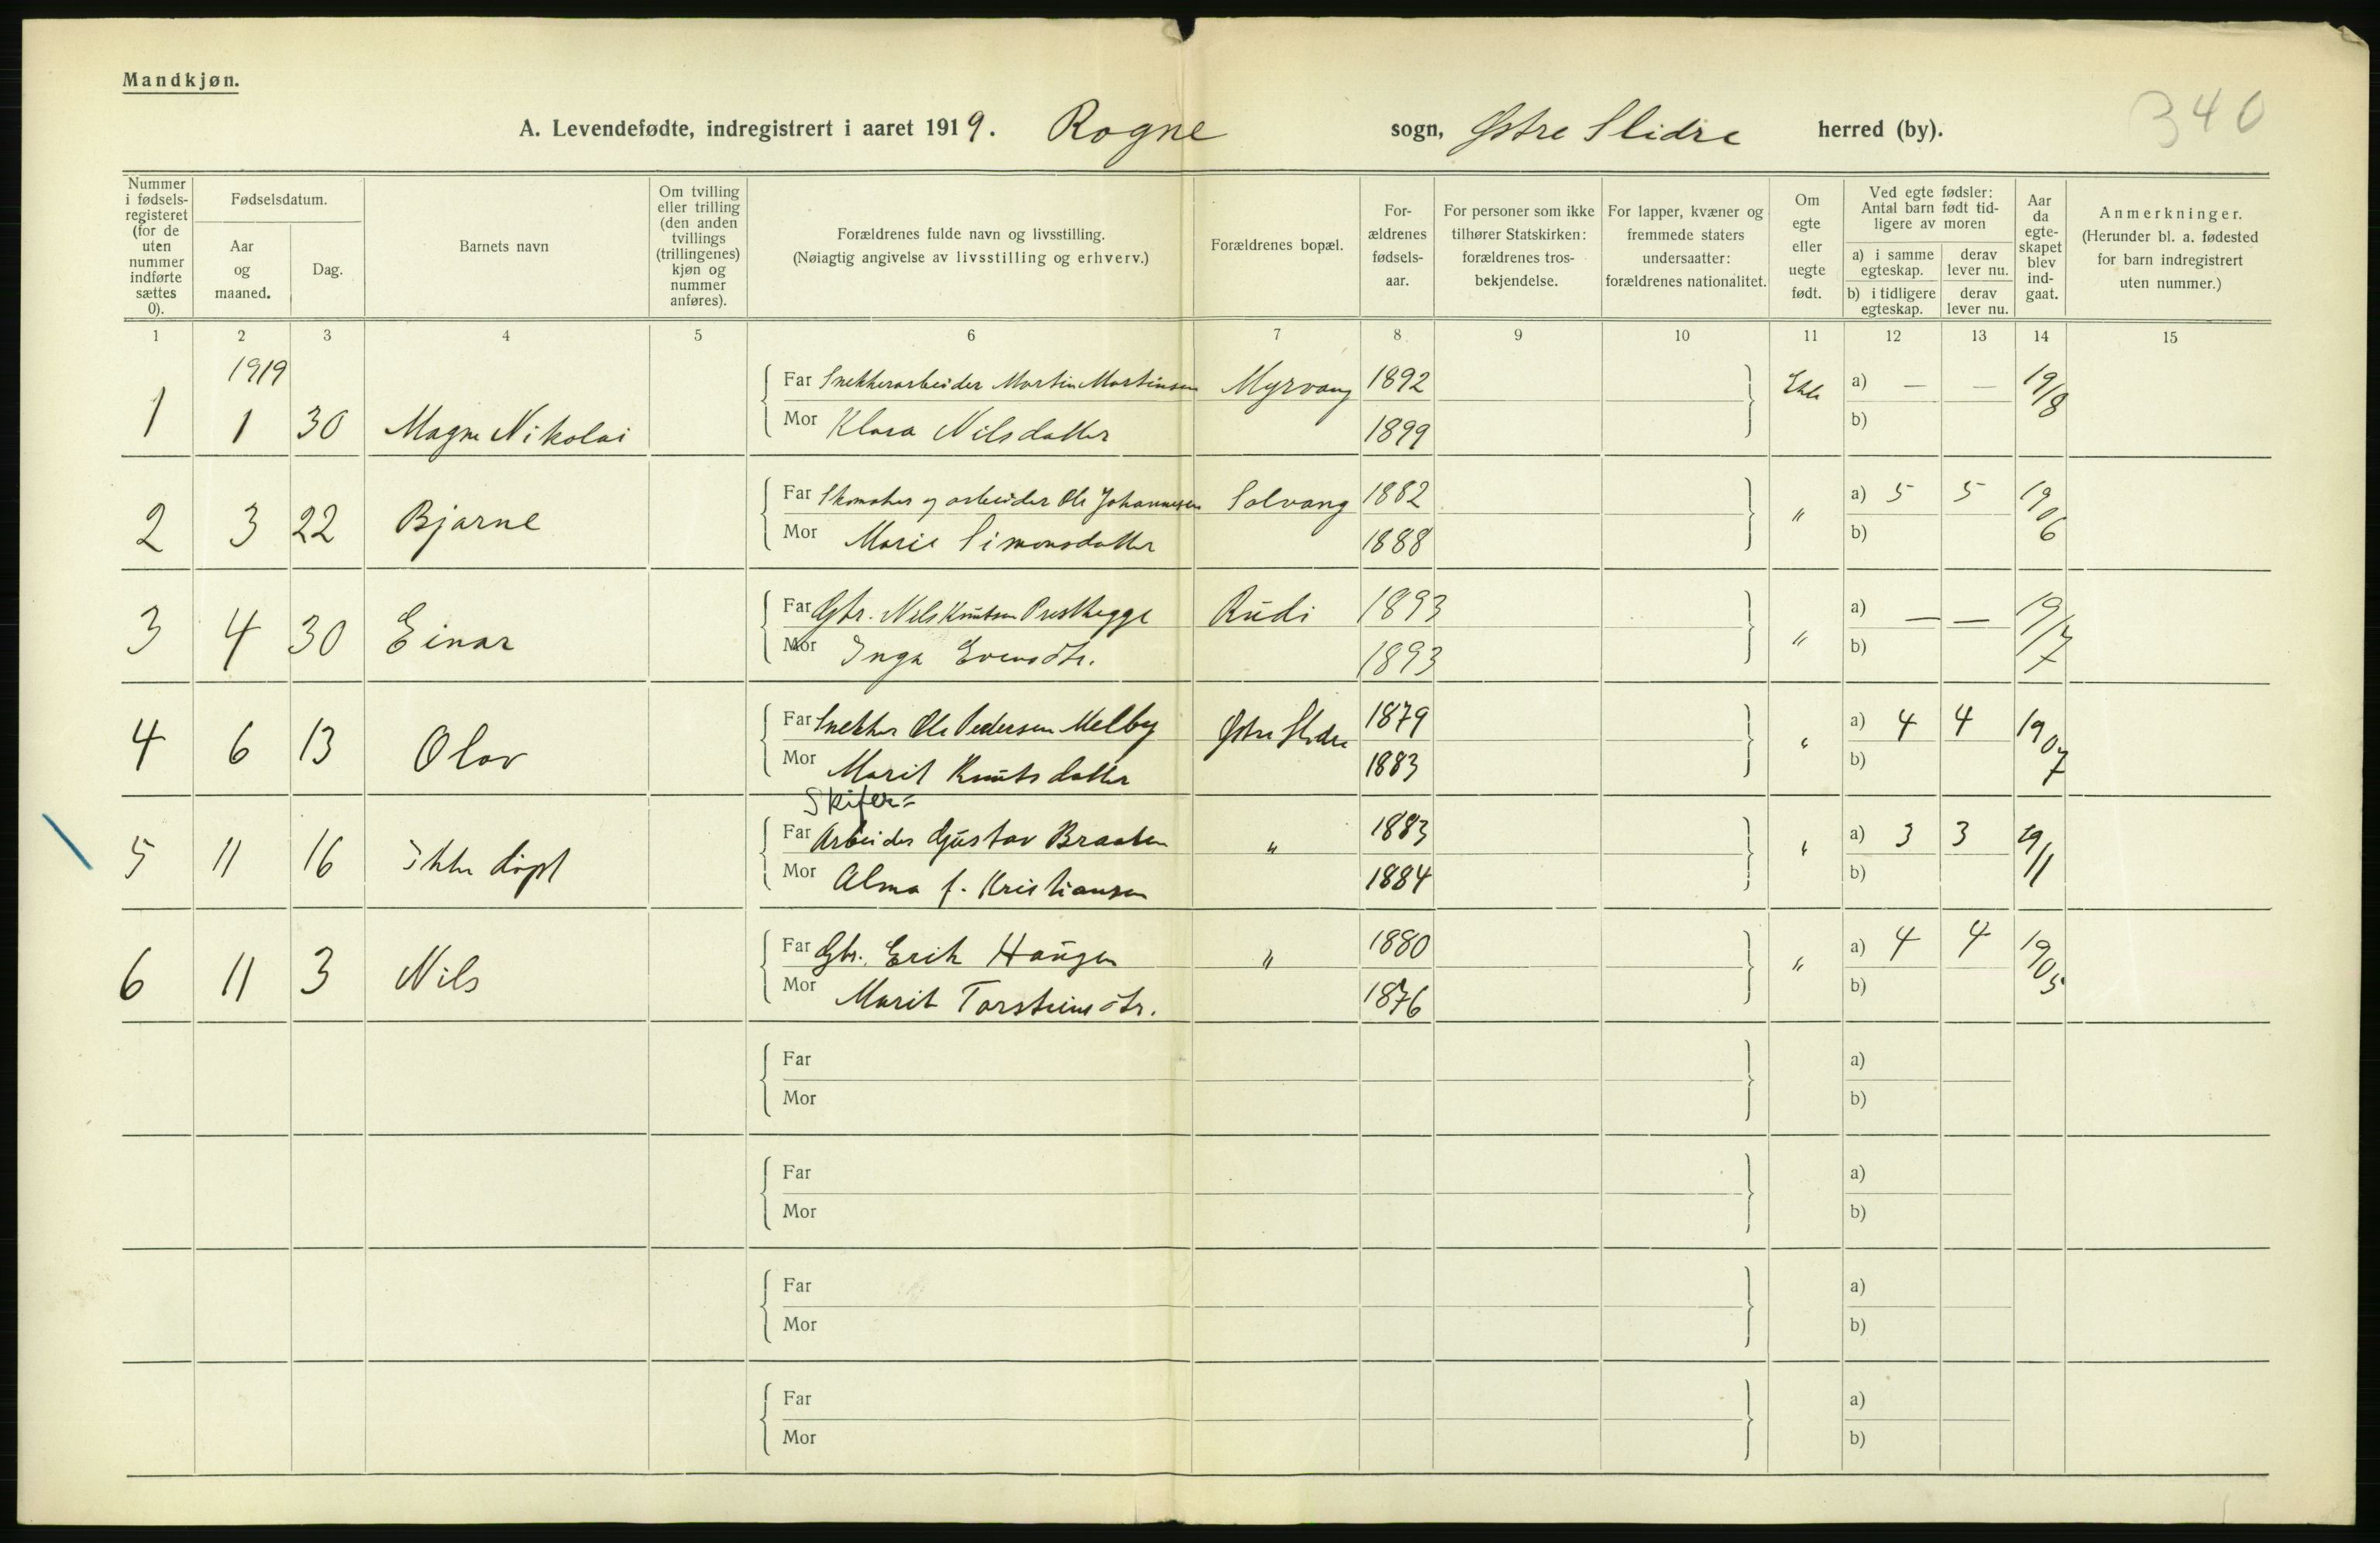 Mandkjøn.
340
A. Levendefødte, indregistrert i aaret 1919. Rogne sogn, Østre Slidre herred (by).
Nummer i fødsels-registeret (for de uten nummer indførte sættes 0).
Fødselsdatum.
Aar og maaned.
Dag.
Barnets navn
Om tvilling eller trilling (den anden tvillings (trillingenes) kjøn og nummer anføres).
Forældrenes fulde navn og livsstilling.
(Nøiagtig angivelse av livsstilling og erhverv.)
Forældrenes bopæl.
For-ældrenes fødsels-aar.
For personer som ikke tilhører Statskirken: forældrenes tros-bekjendelse.
For lapper, kvæner og fremmede staters undersaatter: forældrenes nationalitet.
Om egte eller uegte født.
Ved egte fødsler: Antal barn født tid-ligere av moren
a) i samme egteskap.
derav lever nu.
b) i tidligere egteskap.
derav lever nu.
Aar da egte-skapet blev ind-gaat.
Anmerkninger.
(Herunder bl. a. fødested for barn indregistrert uten nummer.)
1 2 3 4 5 6 7 8 9 10 11 12 13 14 15
1919
1 1 30 Magne Nikolai Far Snekkerarbeider Martin Martinsen Myrvang 1892 Ekte a) — — 19/8
Mor Klara Nilsdatter 1899 b)
2 3 22 Bjarne Far Skomaker og arbeider Ole Johannesen Solvang 1882 " a) 5 5 1906
Mor Marie Simonsdatter 1888 b)
3 4 30 Einar Far Gbr. Nils Knutsen Presthegge Rudi 1893 " a) — — 19/7
Mor Inga Evensdtr. 1893 b)
4 6 13 Olav Far Snekker Ole Pedersen Melby Østre Slidre 1879 " a) 4 4 1907
Mor Marit Knutsdatter 1883 b)
Skifer=
5 11 16 Ikke døpt Far Arbeider Gustav Braaten " 1883 " a) 3 3 19/11
Mor Alma f. Kristiansen 1884 b)
6 11 3 Nils Far Gbr. Erik Haugen " 1880 " a) 4 4 1905
Mor Marit Torsteinsdtr. 1876 b)
Far a)
Mor b)
Far a)
Mor b)
Far a)
Mor b)
Far a)
Mor b)